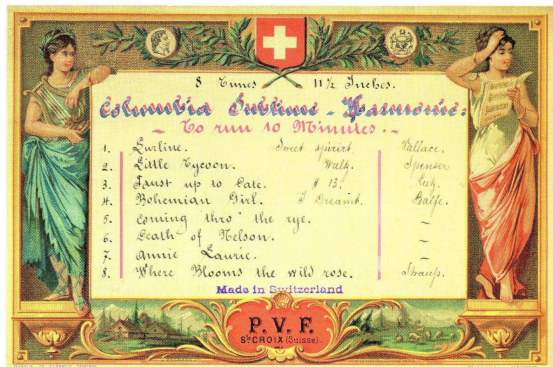 8 Tunes 11½ Inches.
Columbia Sublime - Harmonie:
- To run 10 Minutes. -
1. Lurline. Sweet spirit Wallace.
2. Little Tycoon. Waltz. Spenser
3. Faust up to Date. # 13.
4. Bohemian Girl. I Dreamt. Balfe.
5. Coming thro' the rye. ~
6. Death of Nelson. ~
7. Annie Laurie. ~
8. Where Blooms the wild rose. Strauss.
Made in Switzerland
P.V.F.
Ste CROIX (Suisse)